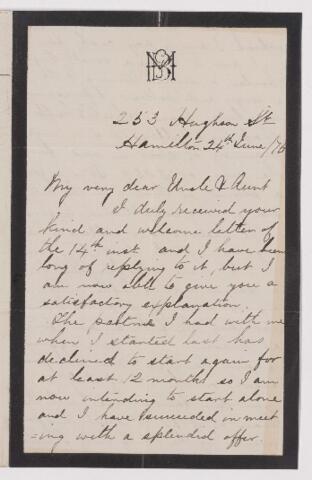 253 Hughson St
Hamilton 24th June/76
My very dear Uncle & Aunt
I duly received your
kind and welcome letter of
the 14th inst and I have been
long of replying to it, but I
am now able to give you a
satisfactory explanation.
The partner I had with me
when I started last has
declined to start again for
at least 12 months so I am
now intending to start alone
and I have succeeded in meet
=ing with a splendid offer.